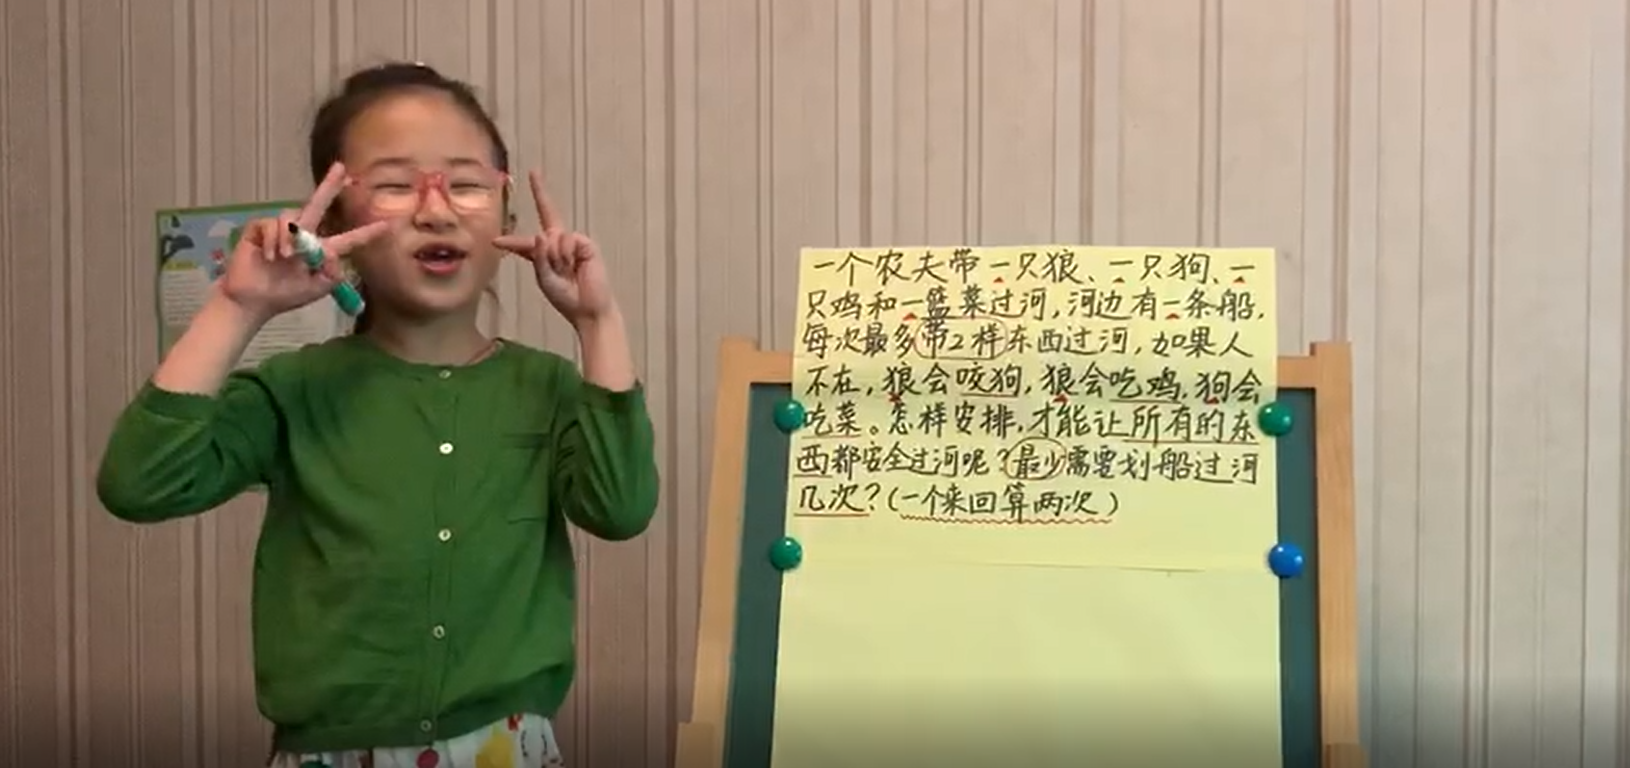 一个农夫带一只狼、一只狗、一
只鸡和一篮菜过河,河边有一条船,
每次最多带2样东西过河,如果人
不在,狼会咬狗,狼会吃鸡,狗会
吃菜。怎样安排,才能让所有的东
西都安全过河呢?最少需要划船过河
几次?(一个来回算两次)